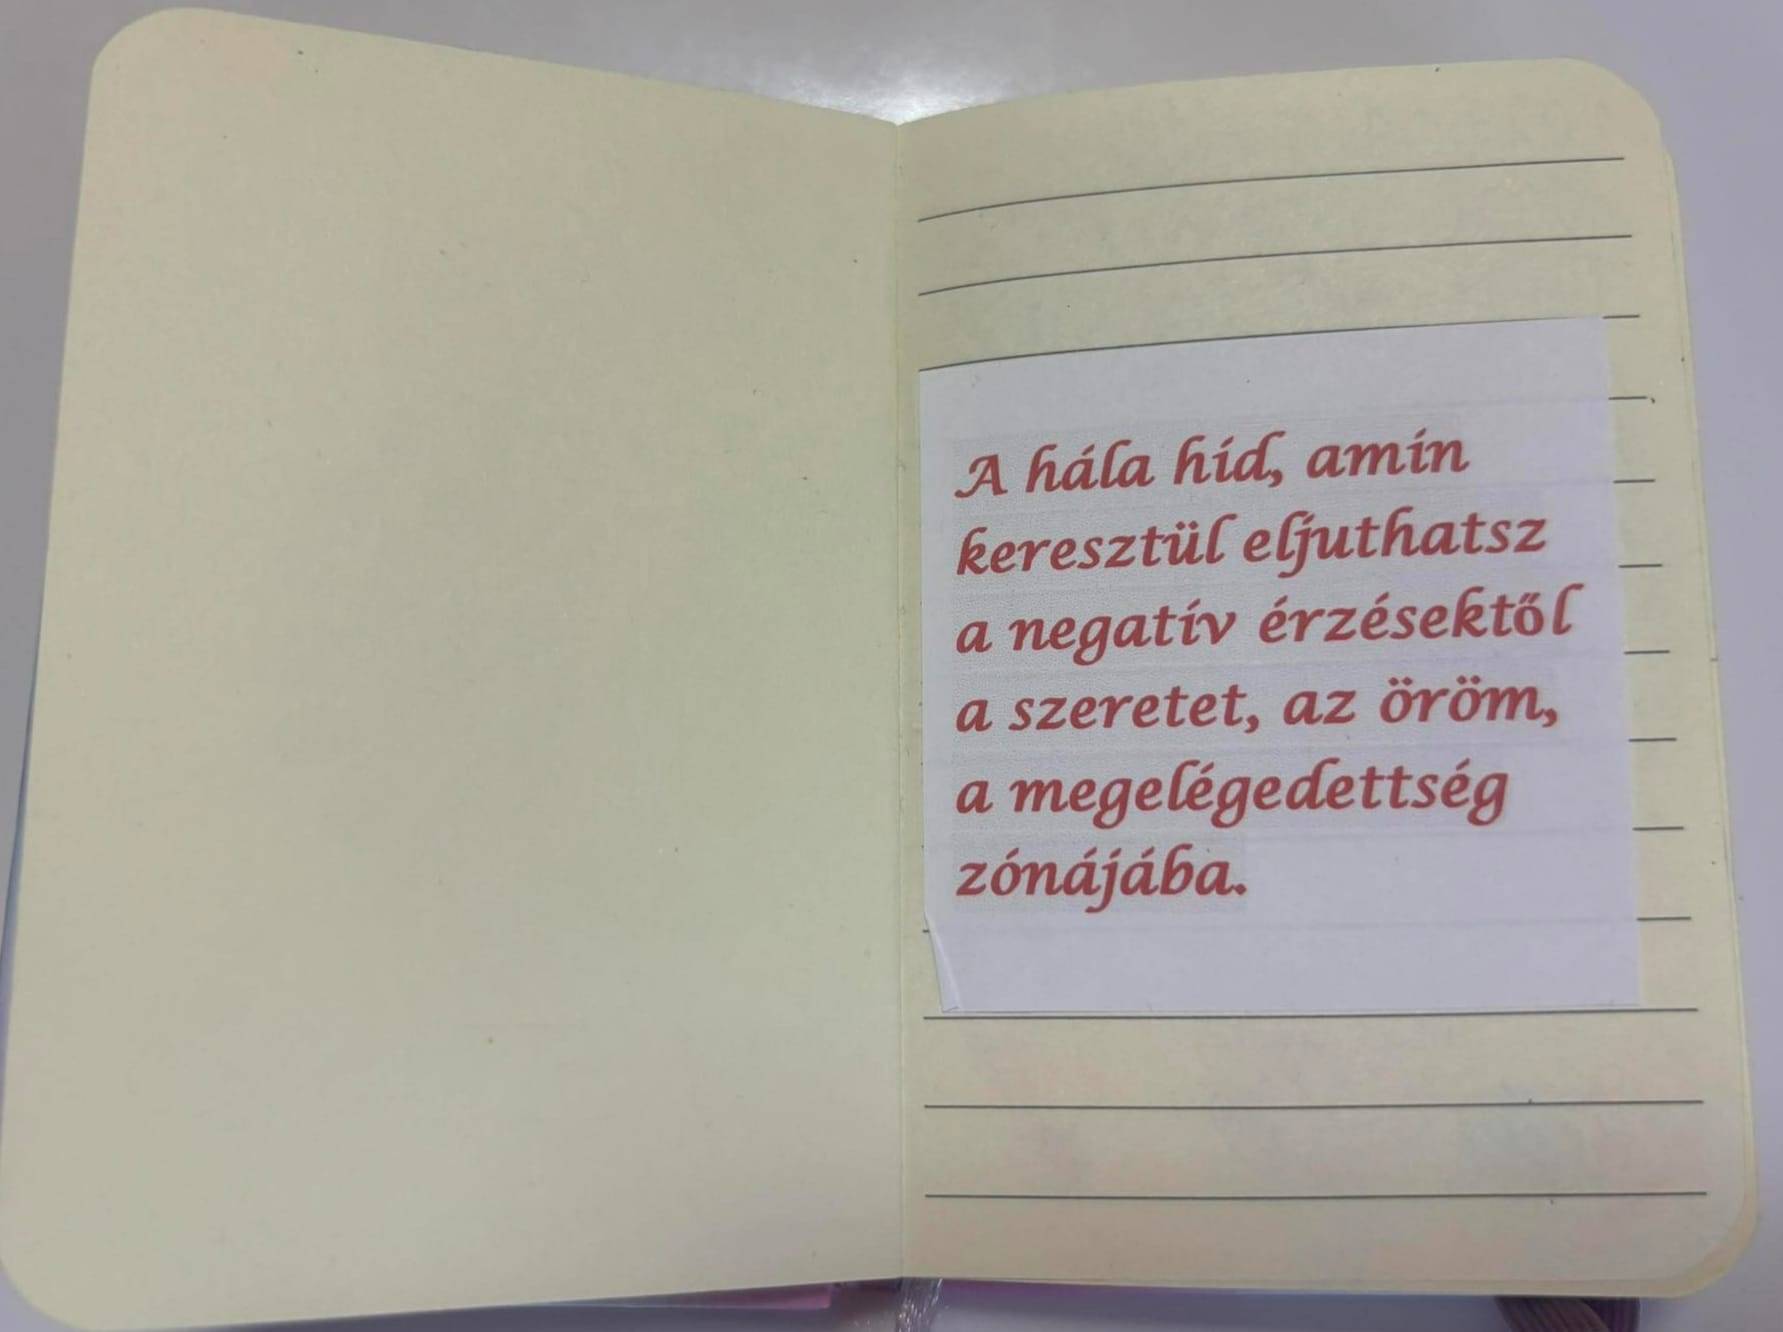 A hála híd, amin
keresztül eljuthatsz
a negatív érzésektől
a szeretet, az öröm,
a megelégedettség
zónájába.